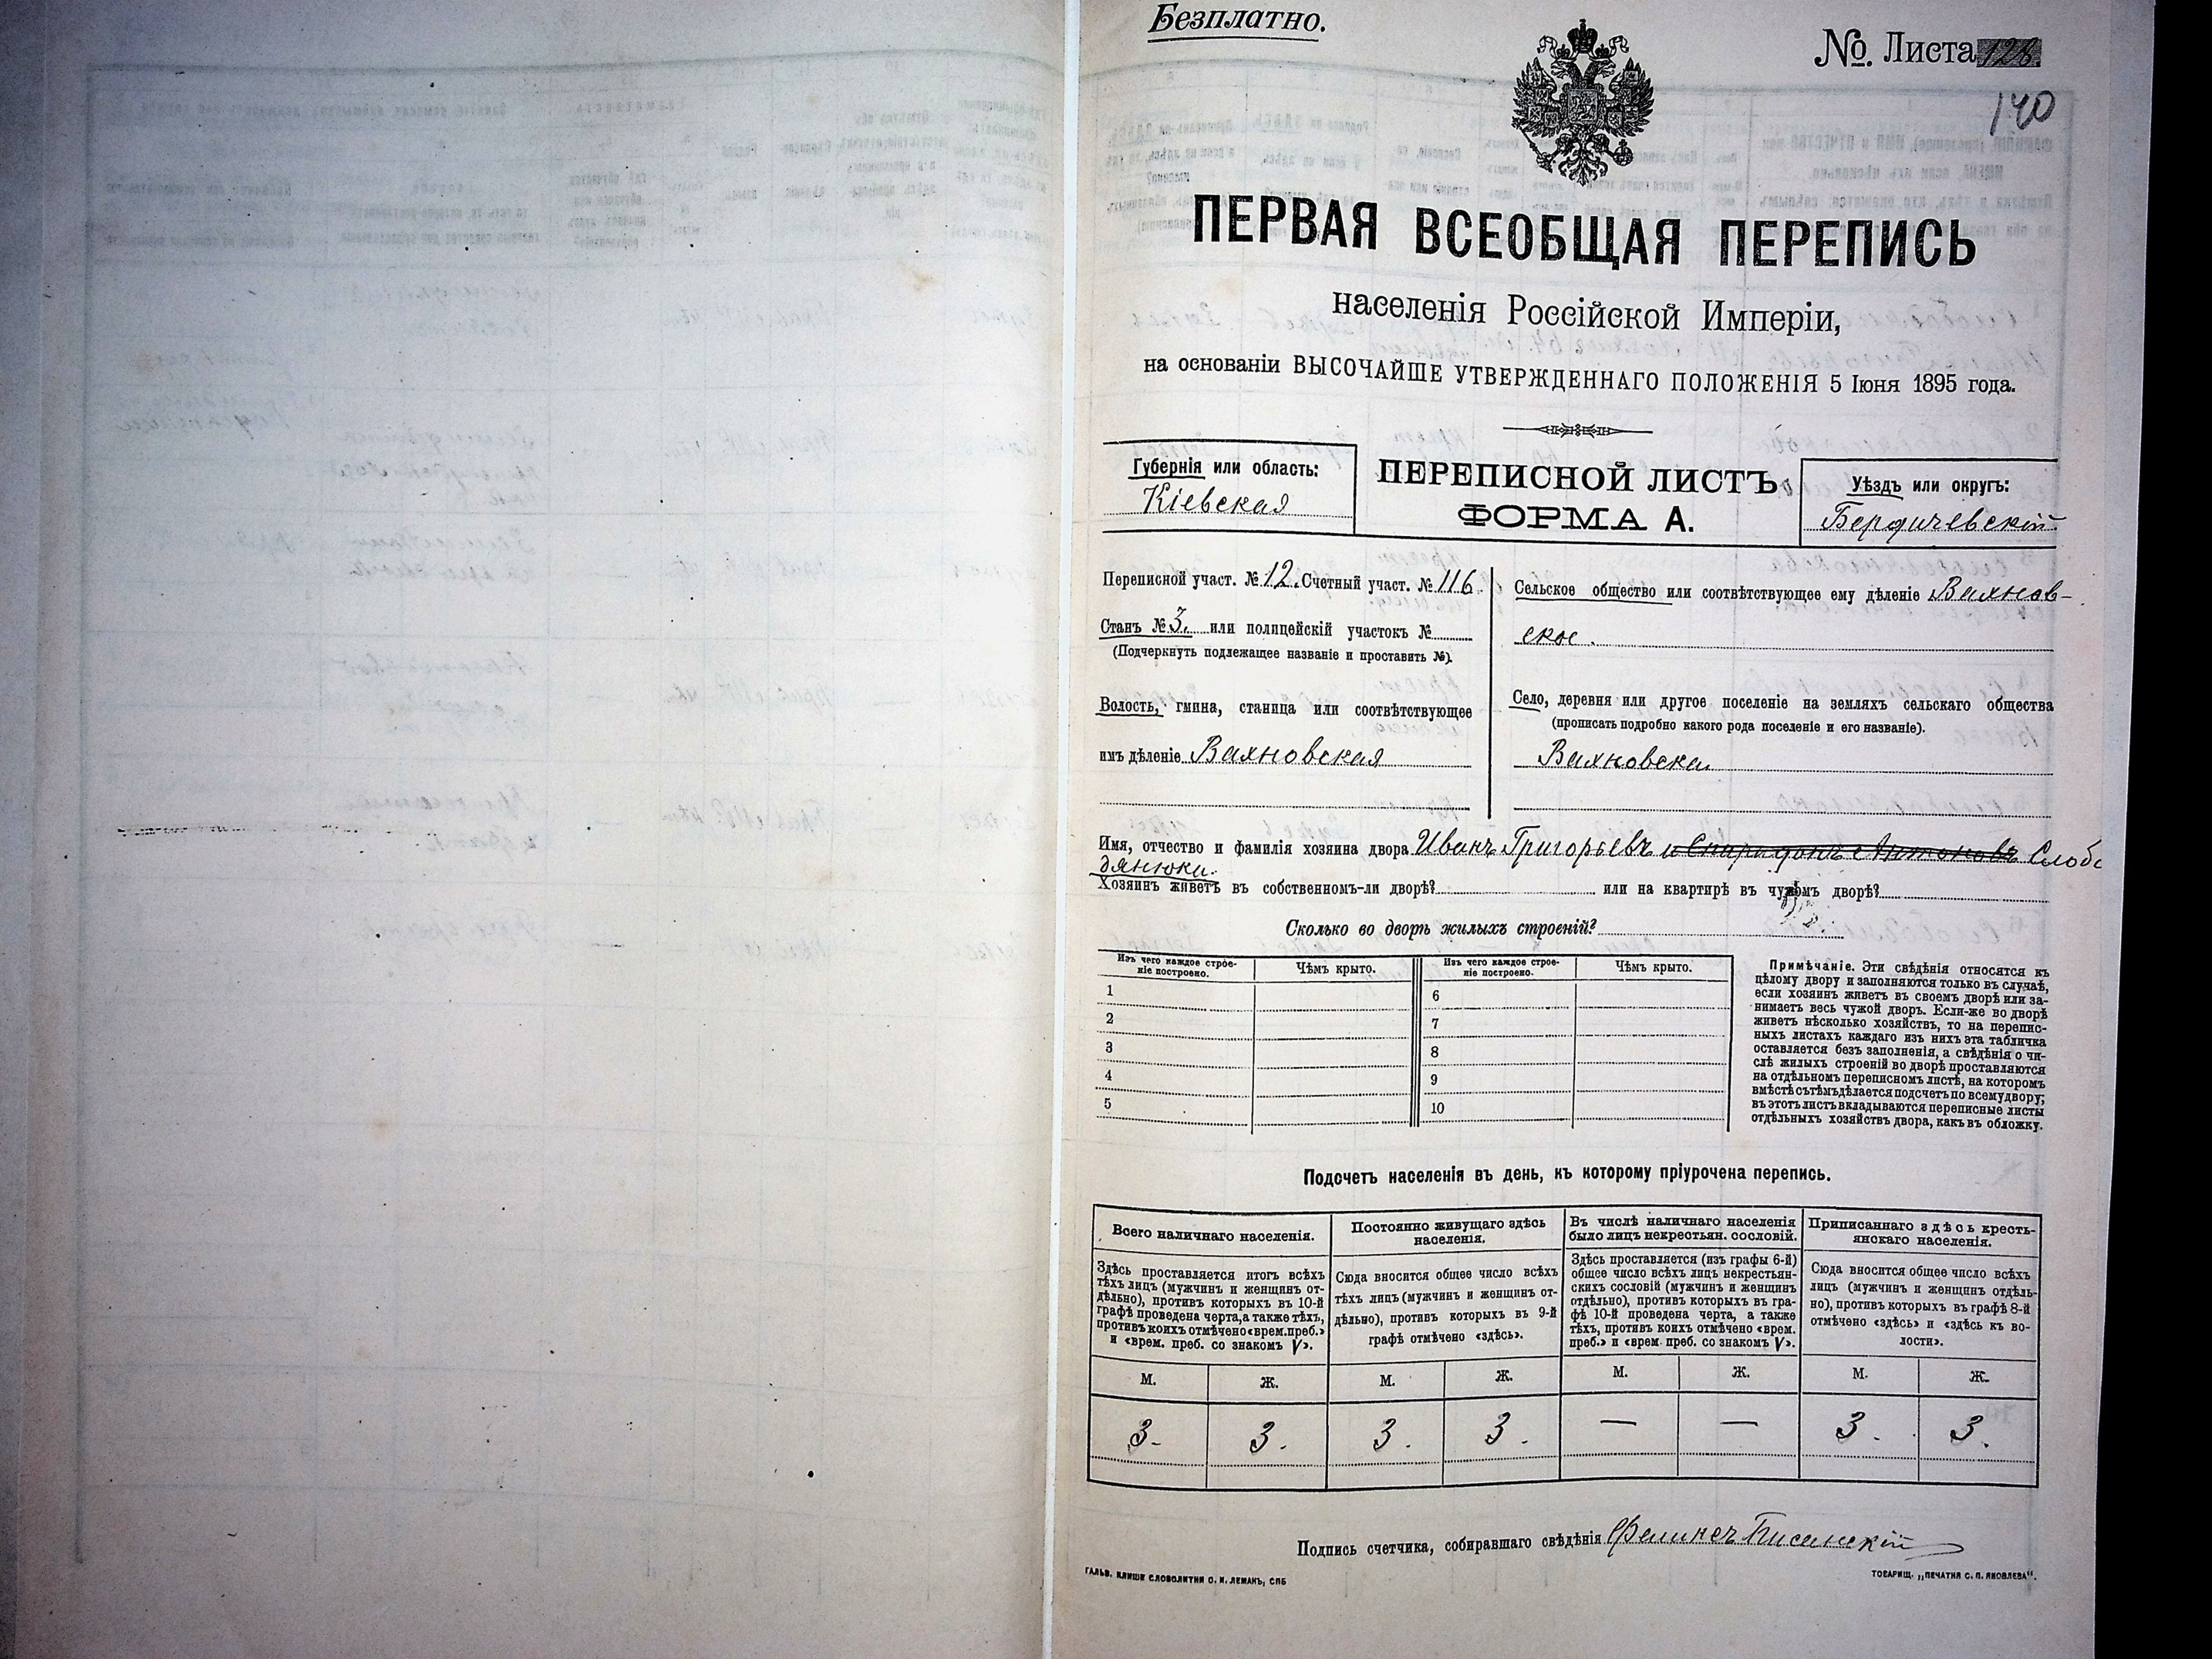 Безплатно.
№ Листа 128.
140
ПЕРВАЯ ВСЕОБЩАЯ ПЕРЕПИСЬ
населенія Россійской Имперіи,
на основаніи ВЫСОЧАЙШЕ УТВЕРЖДЕННАГО ПОЛОЖЕНІЯ 5 Іюня 1895 года.
Губернія или область:
Кіевская
ПЕРЕПИСНОЙ ЛИСТЪ
ФОРМА А.
Уѣздъ или округъ:
Бердичевскій.
Переписной участ. № 12. Счетный участ. № 116.
Станъ № 3. или полицейскій участокъ №
(Подчеркнуть подлежащее названіе и проставить №).
Волость, гмина, станица или соотвѣтствующее
имъ дѣленіе Вахновская
Сельское общество или соотвѣтствующее ему дѣленіе Вахнов-
ское.
Село, деревня или другое поселеніе на земляхъ сельскаго общества
(прописать подробно какого рода поселеніе и его названіе).
Вахновска
Имя, отчество и фамилія хозяина двора Иванъ Григорьевъ и Спиридонъ Антоновъ Слобо
дянюки.
Хозяинъ живетъ въ собственномъ-ли дворѣ? или на квартирѣ въ чужомъ дворѣ?
Сколько во дворѣ жилыхъ строеній?
Изъ чего каждое строе-
ніе построено.
Чѣмъ крыто.
Изъ чего каждое строе-
ніе построено.
Чѣмъ крыто.
1
2
3
4
5
6
7
8
9
10
Примѣчаніе. Эти свѣдѣнія относятся къ
цѣлому двору и заполняются только въ случаѣ,
если хозяинъ живетъ въ своемъ дворѣ или за-
нимаетъ весь чужой дворъ. Если-же во дворѣ
живетъ нѣсколько хозяйствъ, то на перепис-
ныхъ листахъ каждаго изъ нихъ эта табличка
оставляется безъ заполненія, а свѣдѣнія о чи-
слѣ жилыхъ строеній во дворѣ проставляются
на отдѣльномъ переписномъ листѣ, на которомъ
вмѣстѣ съ тѣмъ дѣлается подсчетъ по всему двору;
въ этотъ листъ вкладываются переписные листы
отдѣльныхъ хозяйствъ двора, какъ въ обложку.
Подсчетъ населенія въ день, къ которому пріурочена перепись.
Всего наличнаго населенія.
Здѣсь проставляется итогъ всѣхъ
тѣхъ лицъ (мужчинъ и женщинъ от-
дѣльно), противъ которыхъ въ 10-й
графѣ проведена черта, а также тѣхъ,
противъ коихъ отмѣчено «врем. преб.»
и «врем. преб. со знакомъ V».
Постоянно живущаго здѣсь
населенія.
Сюда вносится общее число всѣхъ
тѣхъ лицъ (мужчинъ и женщинъ от-
дѣльно), противъ которыхъ въ 9-й
графѣ отмѣчено «здѣсь».
Въ числѣ наличнаго населенія
было лицъ некрестьян. сословій.
Здѣсь проставляется (изъ графы 6-й)
общее число всѣхъ лицъ некрестьян-
скихъ сословій (мужчинъ и женщинъ
отдѣльно), противъ которыхъ въ гра-
фѣ 10-й проведена черта, а также
тѣхъ, противъ коихъ отмѣчено «врем.
преб.» и «врем. преб. со знакомъ V».
Приписаннаго здѣсь кресть-
янскаго населенія.
Сюда вносится общее число всѣхъ
лицъ (мужчинъ и женщинъ отдѣль-
но), противъ которыхъ въ графѣ 8-й
отмѣчено «здѣсь» и «здѣсь къ во-
лости».
М. Ж. М. Ж. М. Ж. М. Ж.
3. 3. 3. 3. — — 3. 3.
Подпись счетчика, собиравшаго свѣдѣнія Феликсъ Писанскій
ГАЛЬВ. КЛИШЕ СЛОВОЛИТНИ О. И. ЛЕМАНЪ, СПБ
ТОВАРИЩ. „ПЕЧАТНЯ С. П. ЯКОВЛЕВА“.